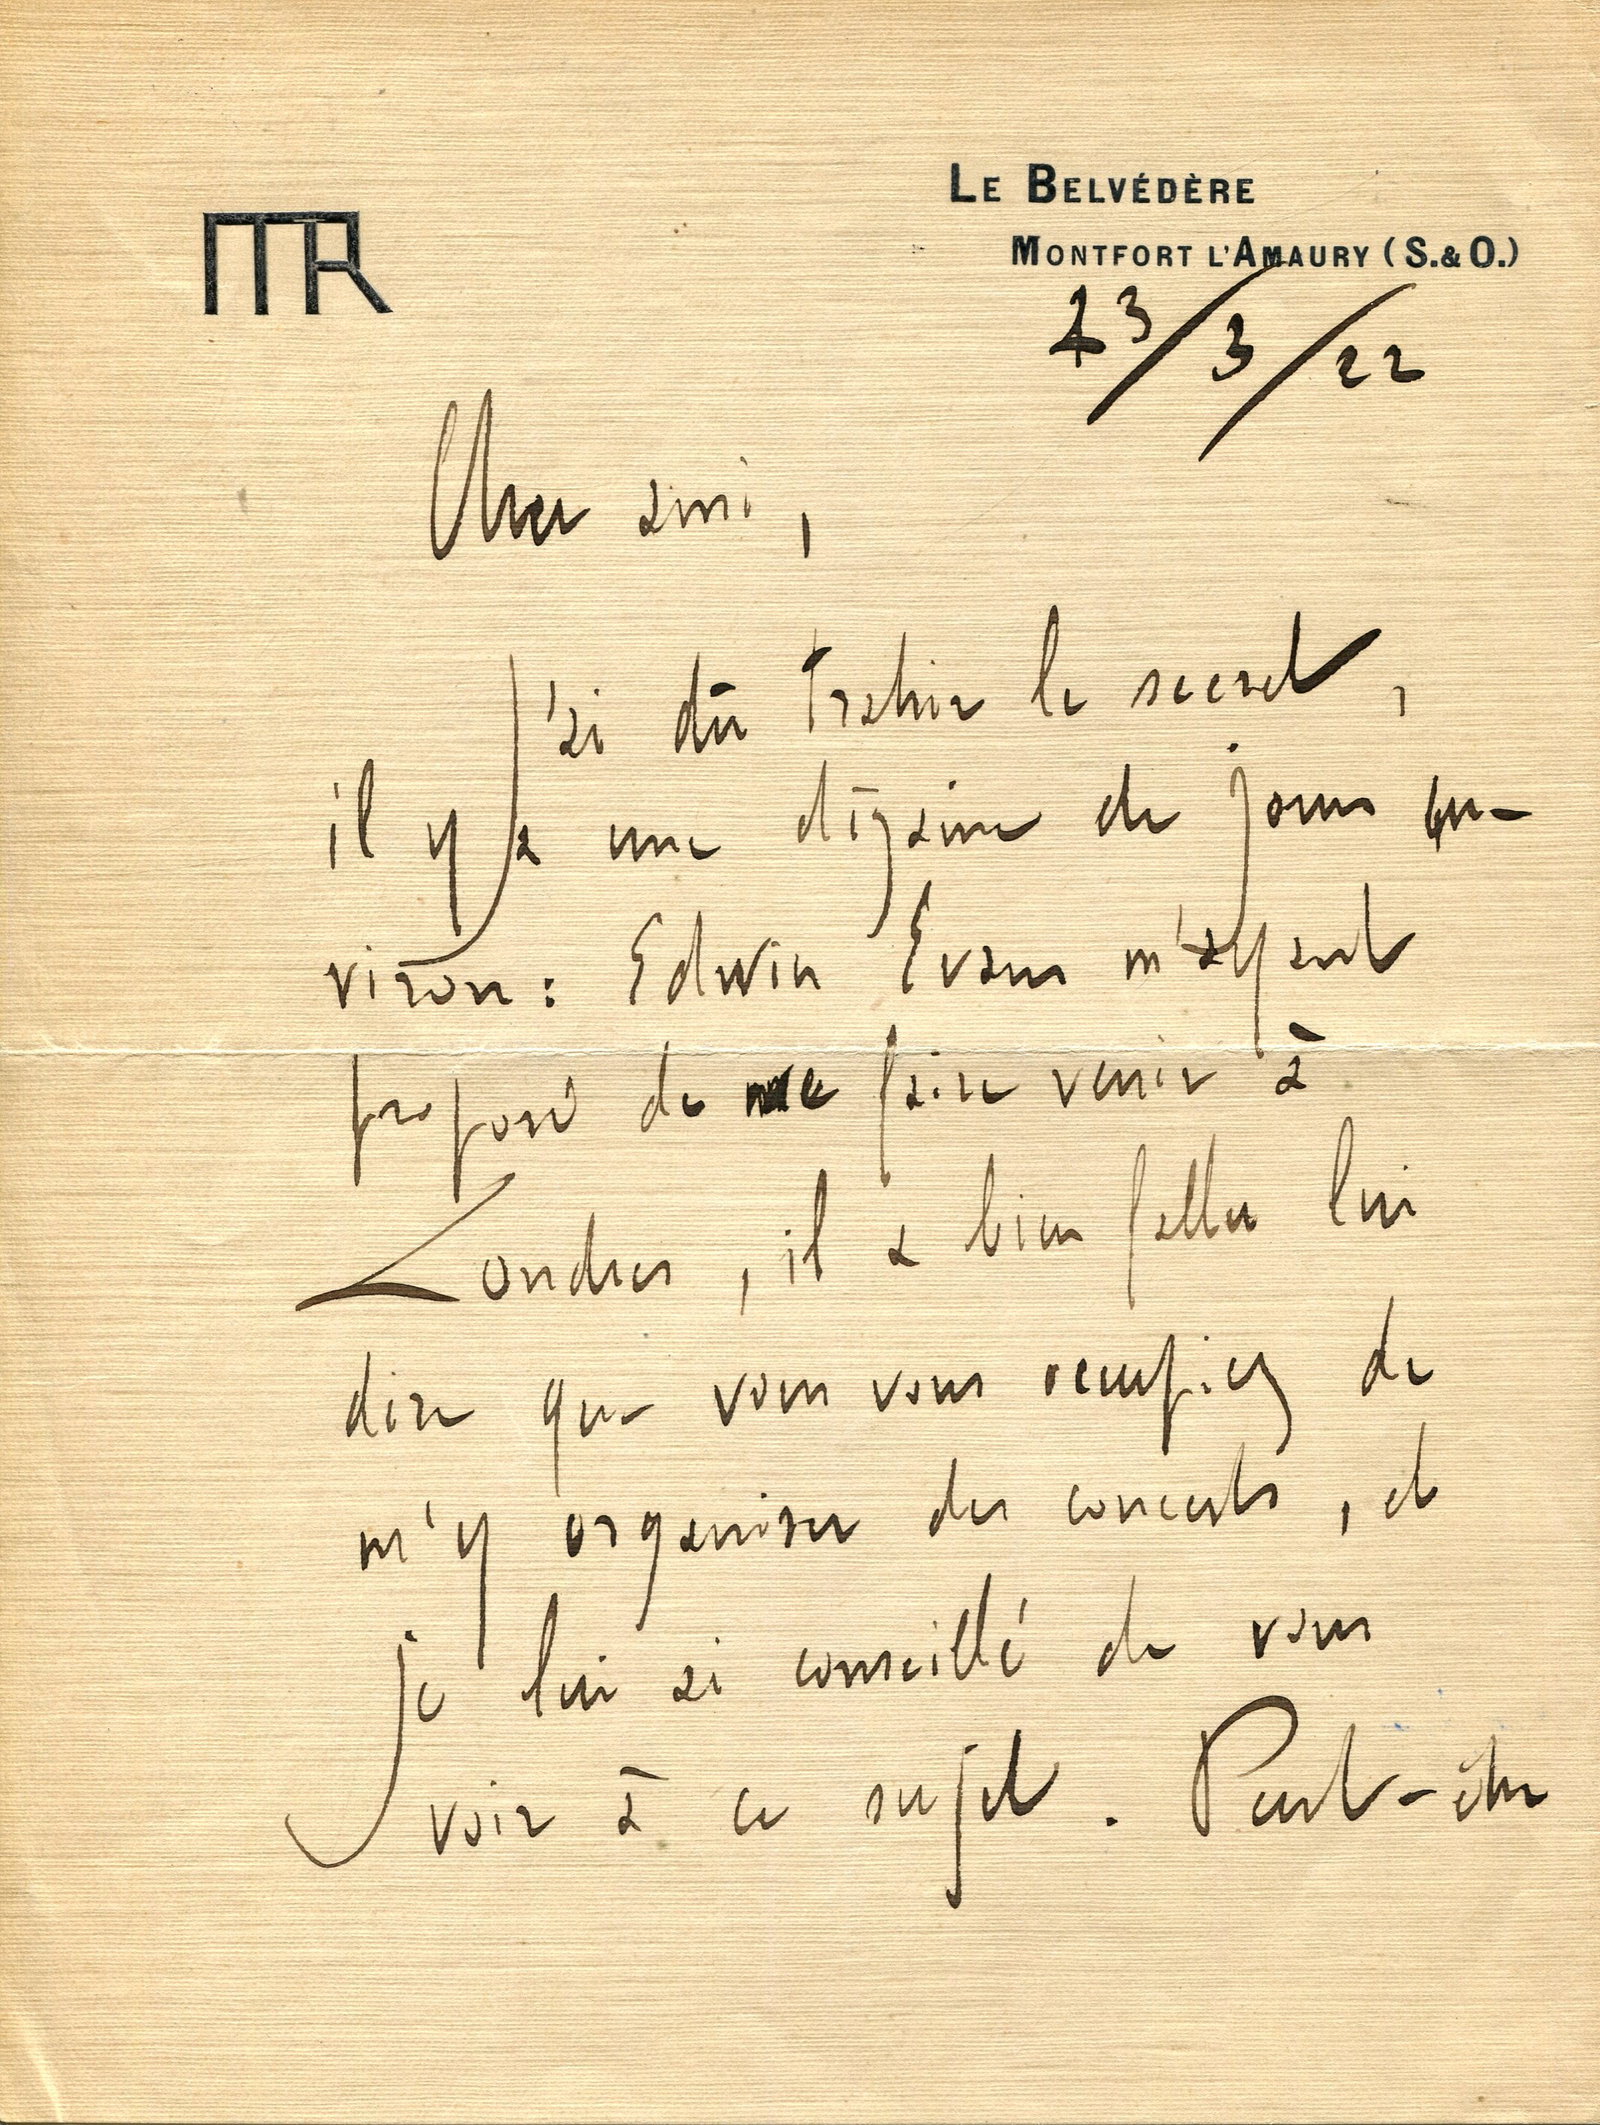 MR
LE BELVÉDÈRE
MONTFORT L'AMAURY (S.&O.)
23/3/22
Cher ami,
J'ai dû trahir le secret,
il y a une dizaine de jours en-
viron: Edwin Evans m'ayant
proposé de me faire venir à
Londres, il a bien fallu lui
dire que vous vous occupiez de
m'y organiser des concerts, et
je lui ai conseillé de vous
voir à ce sujet. Peut-être